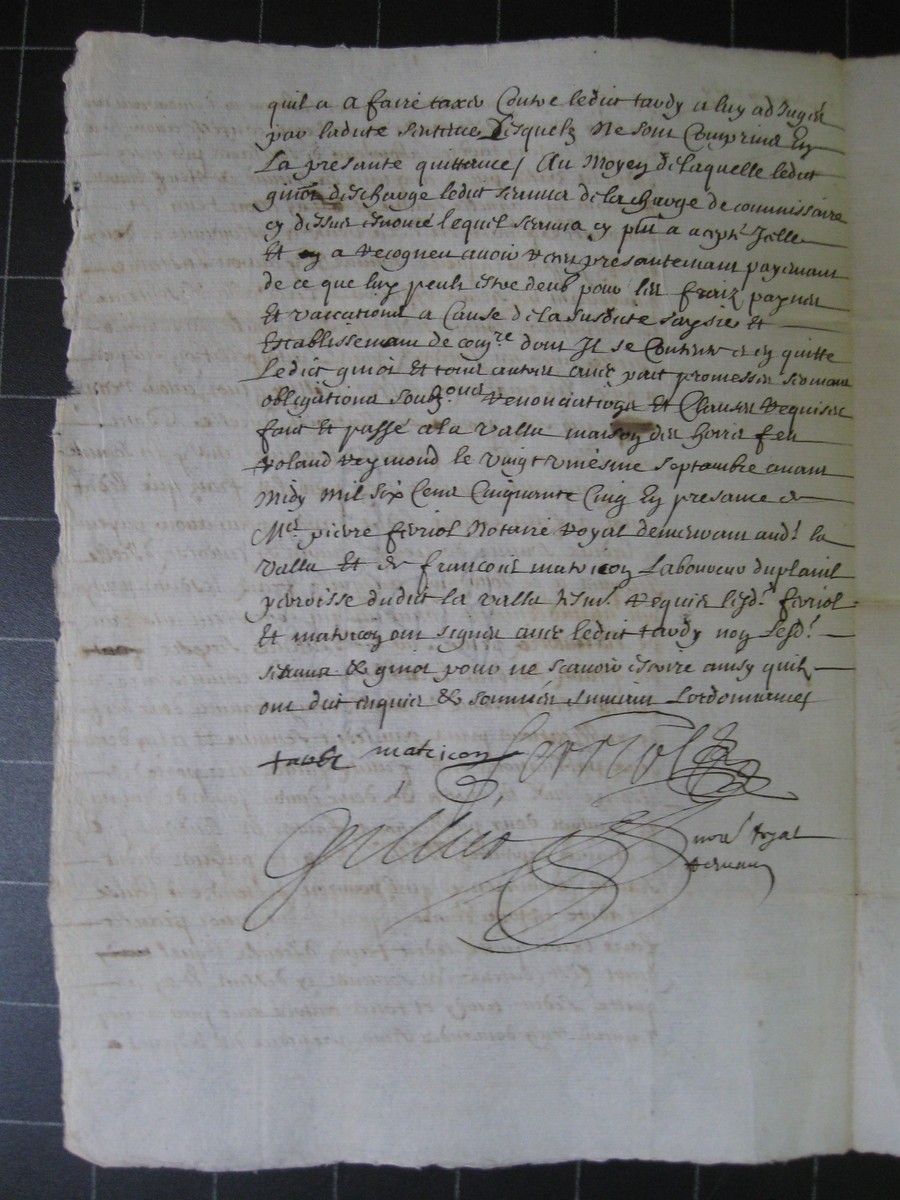 quil a a faire taxer Contre ledict tardy a luy adjugés
par ladite sentence Desquelz Ne sont Comprins En
La presante quittance / Au Moyen de laquelle ledict
ginot descharge ledict seruua de la charge de commissaire
cy dessus enoncé lequel seruua cy pnt a acepté Jcelle
Et a recogneu auoir receu presantemant payemant
de ce que luy peult estre deub pour les fraix paynes
Et vaccations a Cause de la susdite saysie et
Establissemant de comre dont Jl se Contente et en quitte
Ledict ginot Et tous autres auec pact promesses sermant
obligations soubz.ons Renonciations Et Clauses Requises
fait Et passé a la valla maison des hoirs feu
Roland Reymond le vingt uniesme septambre auant
Midy Mil six Cens Cinquante Cinq En presance de
Me pierre ferriol Notaire Royal demeurant aud. la
Valla Et de francois matricon Laboureur du planil
parroisse dudict la valla tesm. Requis lesd. ferriol
Et matricon ont signés auec ledict tardy non lesd.
seruua & ginot pour ne scauoir escrire ainsy quilz
ont dict enquis & sommés suiuant Lordonnance
tardi matricon ferriol
nore Royal